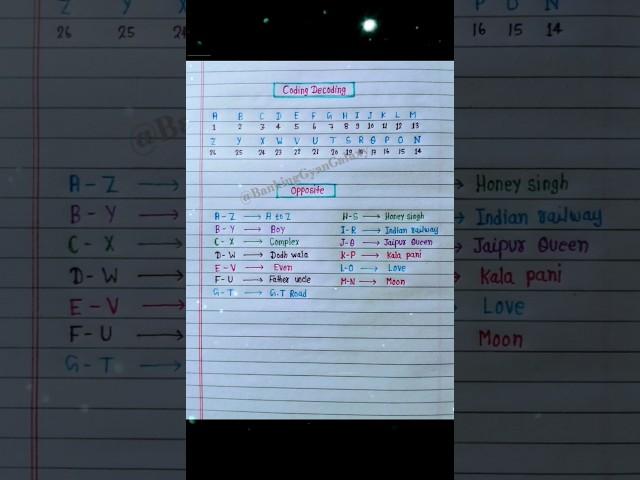 Coding Decoding
A B C D E F G H I J K L M
1 2 3 4 5 6 7 8 9 10 11 12 13
Z Y X W V U T S R Q P O N
26 25 24 23 22 21 20 19 18 17 16 15 14
@BankingGyanGalaxy
Opposite
A-Z → A to Z H-S → Honey singh
B-Y → Boy I-R → Indian railway
C-X → Complex J-Q → Jaipur Queen
D-W → Dodh wala K-P → Kala pani
E-V → Even L-O → Love
F-U → Father uncle M-N → Moon
G-T → G.T Road